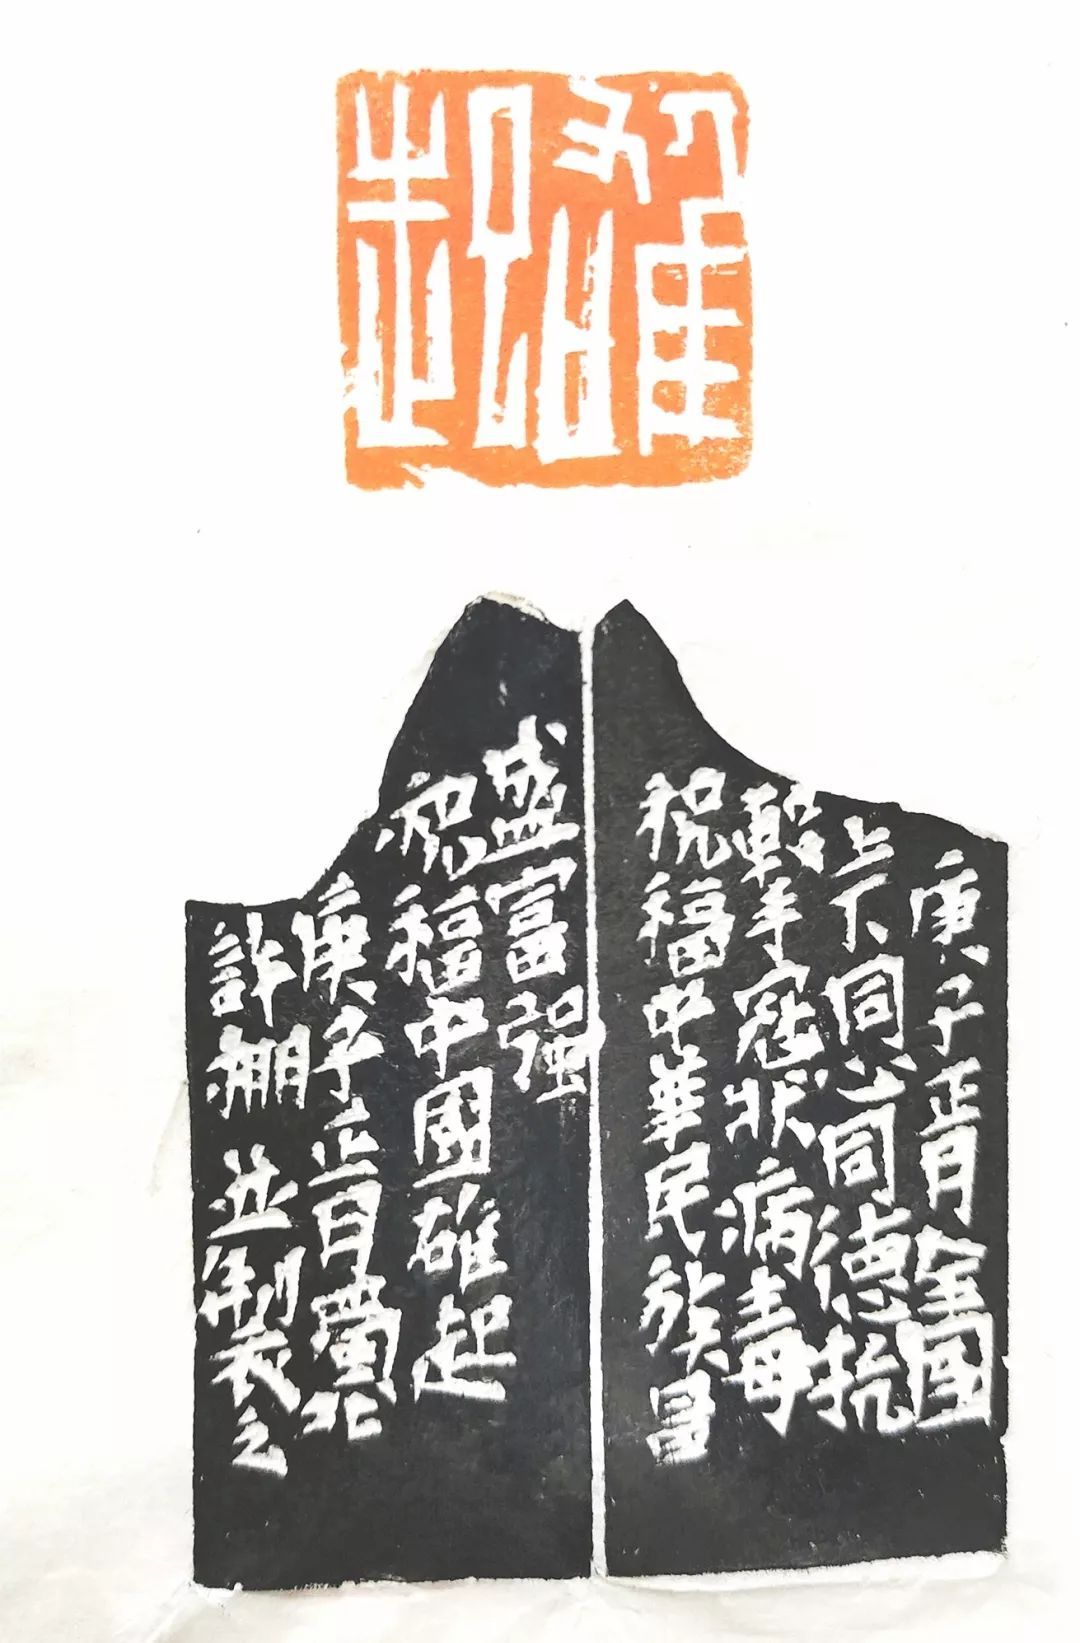 雄起
庚子正月全國
上下同心同德抗
擊冠狀病毒
祝福中華民族昌
盛富强
祝福中國雄起
庚子正月蜀北
許 並製之